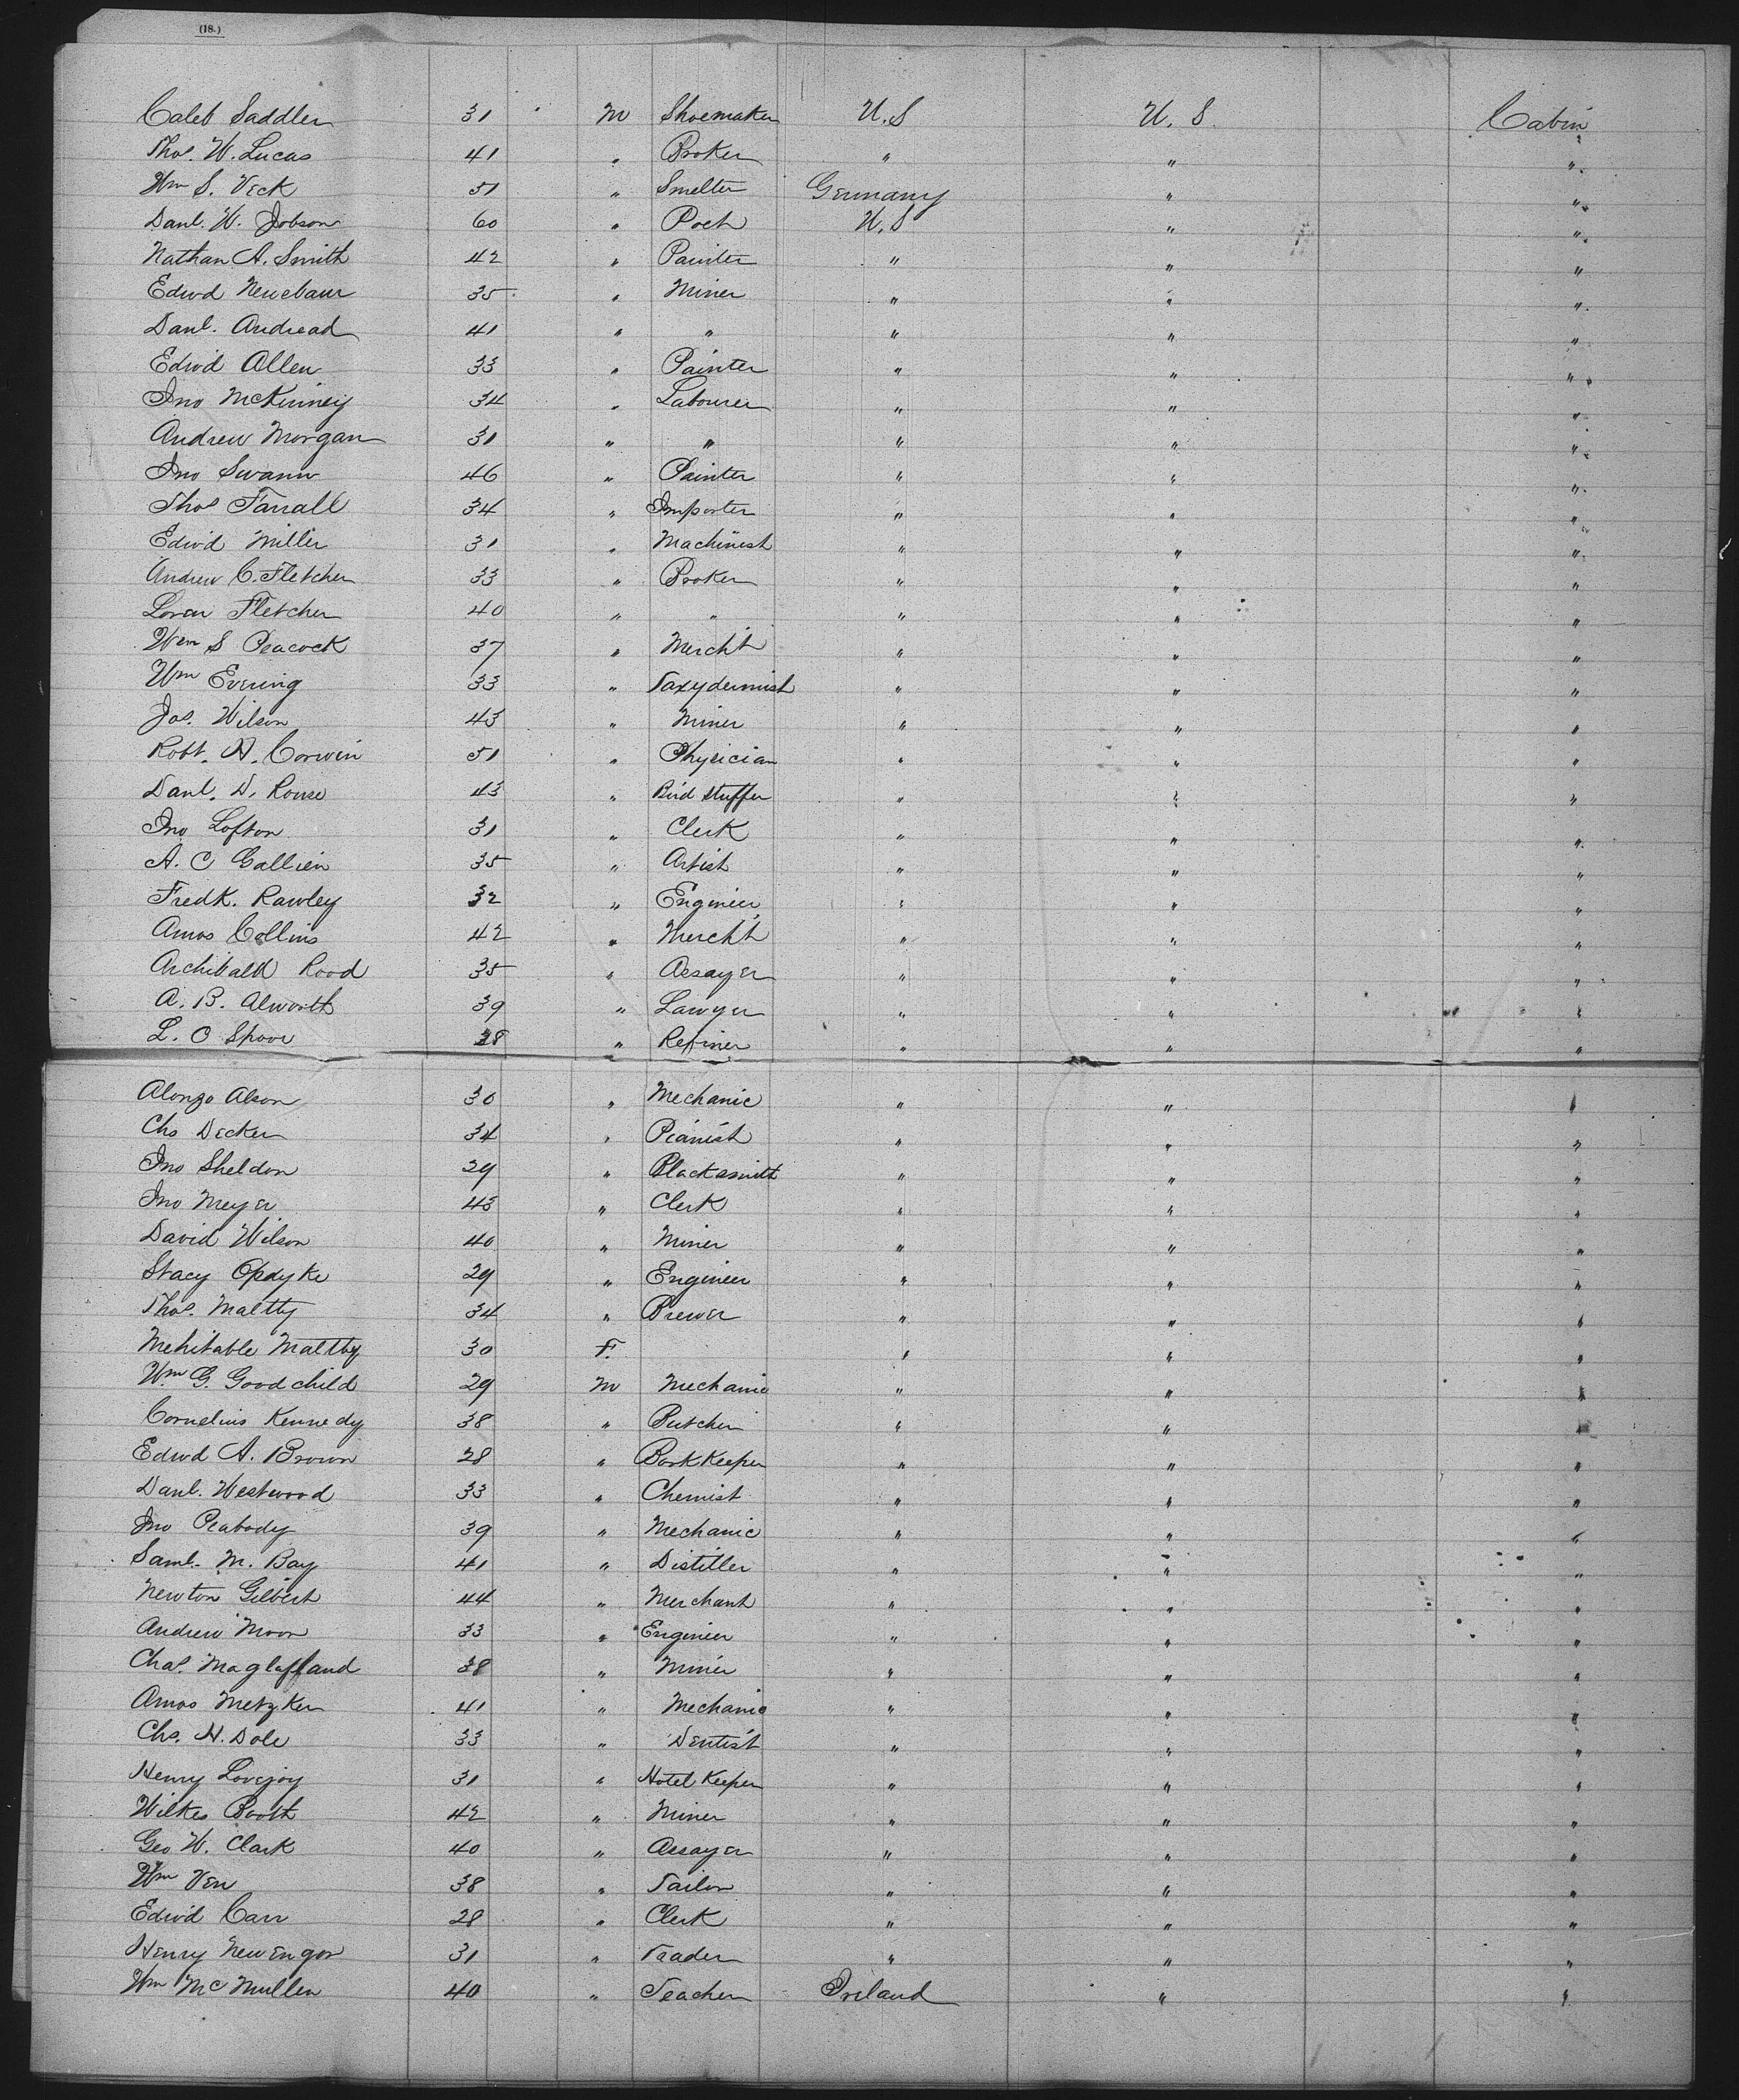 (18.)
Caleb Saddler 31 M Shoemaker U.S U.S. Cabin
Thos. W. Lucas 41 " Broker " " "
Wm S. Veck 51 " Smelter Germany " "
Danl. W. Jobson 60 " Poet U.S " "
Nathan A. Smith 42 " Painter " " "
Edwd Newebaur 35 " Miner " " "
Danl. Andread 41 " " " " "
Edwd Allen 33 " Painter " " "
Jno McKinney 34 " Labourer " " "
Andrew Morgan 31 " " " " "
Jno Swann 46 " Painter " " "
Thos Farrall 34 " Importer " " "
Edwd Miller 31 " Machinest " " "
Andrew C. Fletcher 33 " Broker " " "
Loren Fletcher 40 " " " " "
Wm S Peacock 37 " Mercht " " "
Wm Evering 33 " Taxydermist " " "
Jos. Wilson 43 " Miner " " "
Robt. A. Corwin 51 " Physician " " "
Danl. D. Rouse 43 " Bird stuffer " " "
Jno Lofton 31 " Clerk " " "
A. C Gallien 35 " Artist " " "
Fredk. Rawley 32 " Engineer " " "
Amos Collins 42 " Mercht " " "
Archibald Rood 35 " Assayer " " "
A. B. Alworth 39 " Lawyer " " "
L. O Spoor 38 " Refiner " " "
Alonzo Alson 30 " Mechanic " " "
Chs Decker 34 " Pianist " " "
Jno Sheldon 29 " Blacksmith " " "
Jno Meyer 43 " Clerk " " "
David Wilson 40 " Miner " " "
Stacy Opdyke 29 " Engineer " " "
Thos. Maltby 34 " Brewer " " "
Mehitable Maltby 30 F. " " "
Wm G. Goodchild 29 M Mechanic " " "
Cornelius Kennedy 38 " Butcher " " "
Edwd A. Brown 28 " Bookkeeper " " "
Danl. Westwood 33 " Chemist " " "
Jno Peabody 39 " Mechanic " " "
Saml. M. Bay 41 " Distiller " " "
Newton Gilbert 44 " Merchant " " "
Andrew Moon 33 " Engineer " " "
Chas. Maglaffand 38 " Miner " " "
Amos Metzker 41 " Mechanic " " "
Chs. H. Dole 33 " Dentist " " "
Henry Lovejoy 31 " Hotel Keeper " " "
Wilkes Booth 42 " Miner " " "
Geo W. Clark 40 " Assayer " " "
Wm Ven 38 " Tailor " " "
Edwd Carr 28 " Clerk " " "
Henry Newengor 31 " Trader " " "
Wm McMullen 40 " Teacher Ireland " "